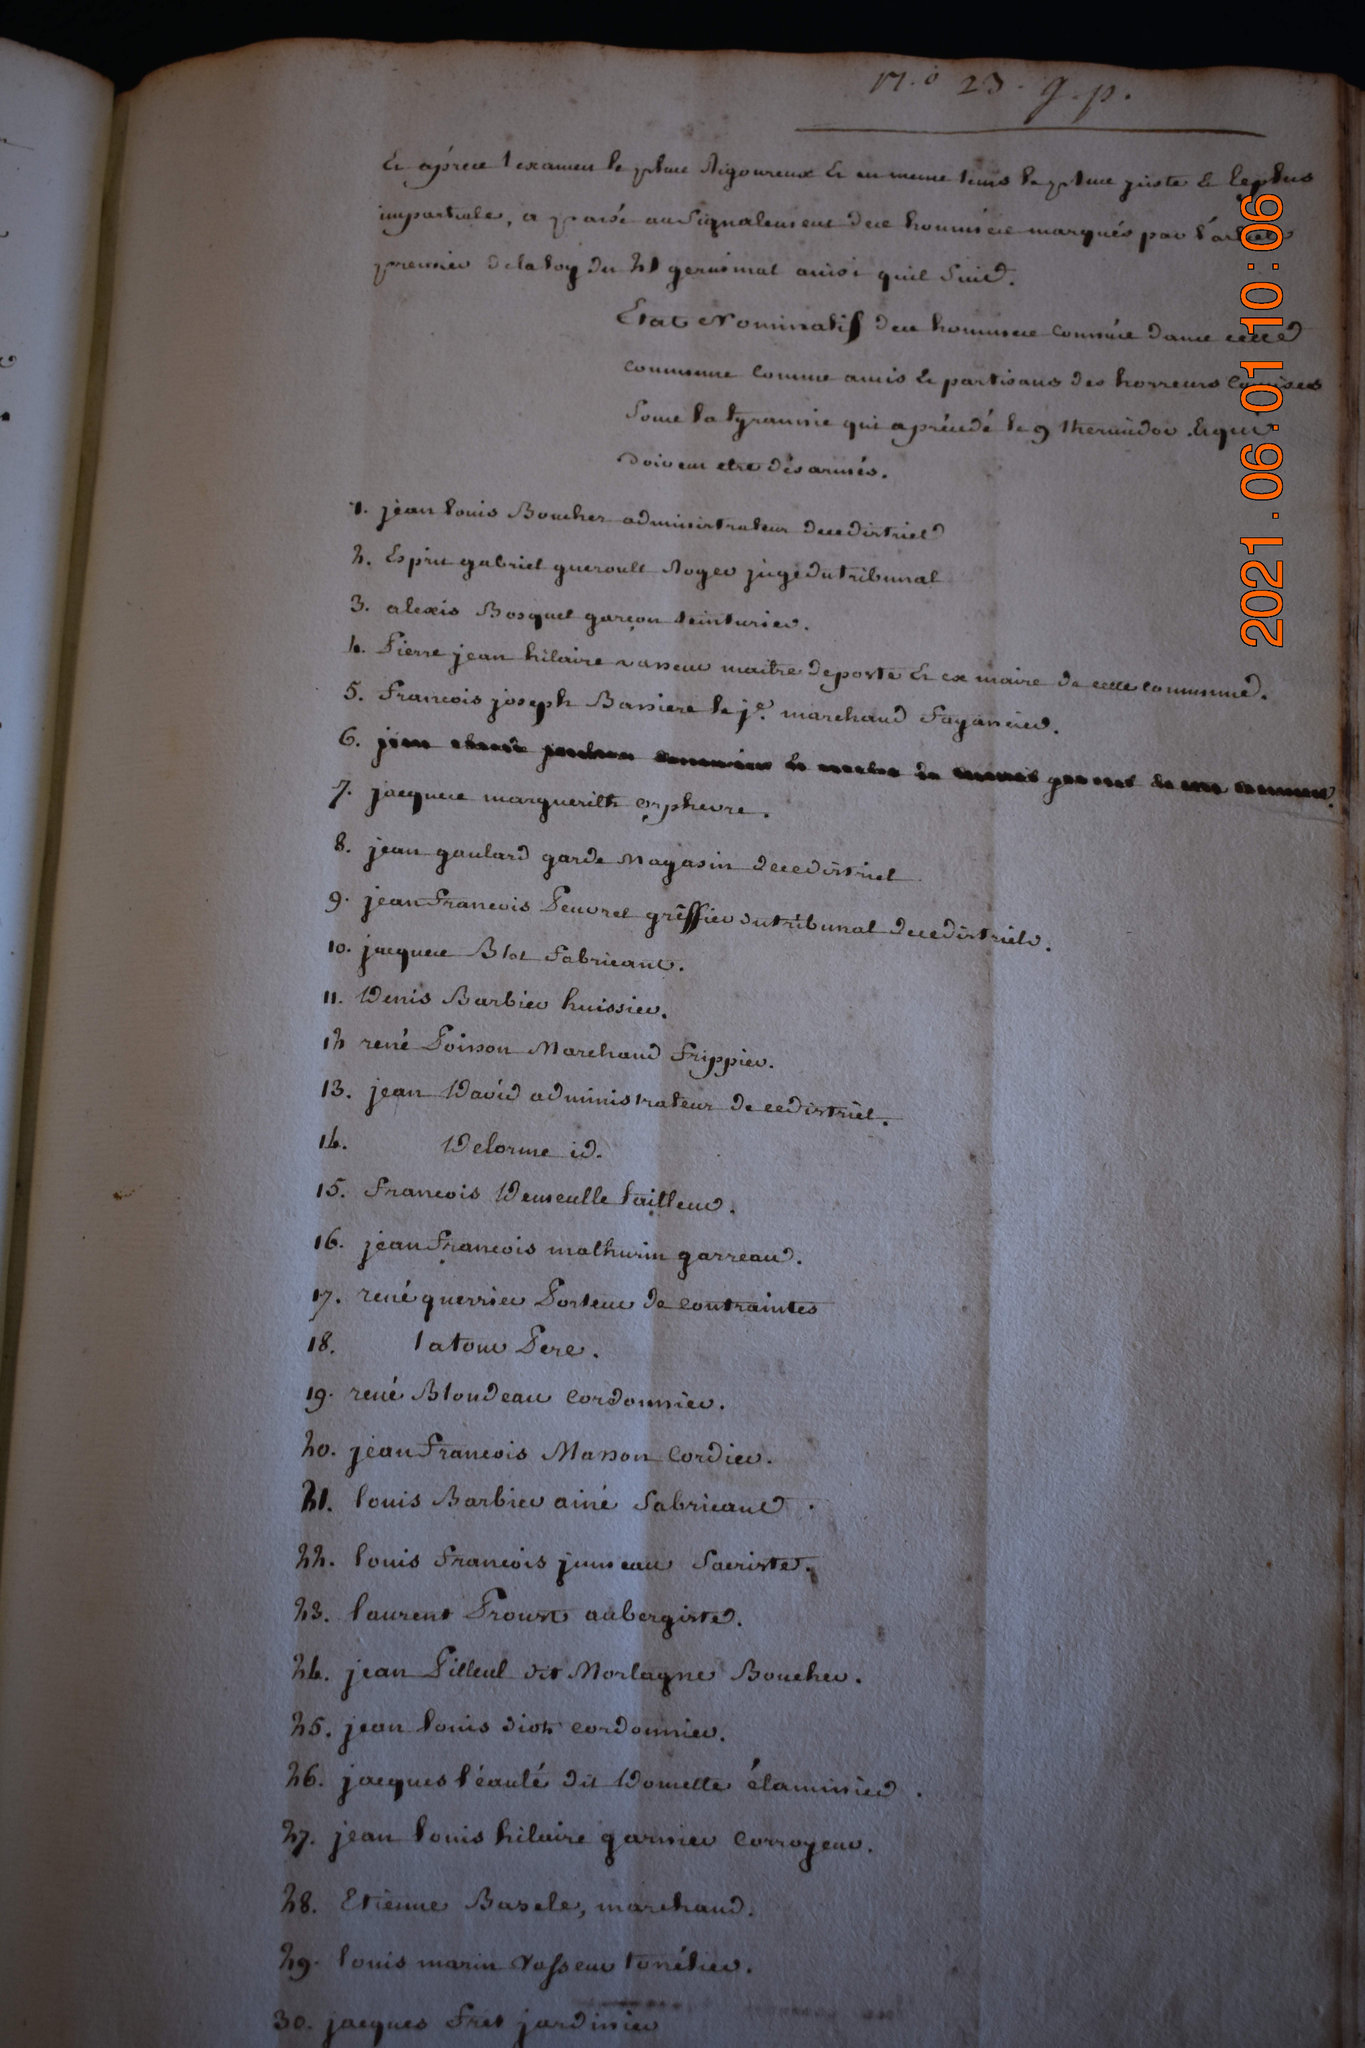 n.o 23. g.p.
Et aprèes l'examen le plus Rigoureux et en meme tems le plus juste & le plus
impartiale, a passé au Signalement dece hommée marqués par l'article
premier de la loy du 21 germinal ainsi quil Suit.
Etat Nominatif dece hommes connus dans cette
commune comme amis et partisans des horreurs Comises
Sous la tyrannie qui a précédé le 9 thermidor. Et qui
doivent etre désarmés.
1. jean louis Boucher administrateur de ce district
2. Esprit gabriel gueroult Roger juge du tribunal
3. alexis Bosquet garçon teinturier.
4. Pierre jean hilaire vasseur maitre de poste et ex maire de cette commune.
5. François joseph Barriere le je. marchand Fayancier.
6.
7. jacques marguerith orphevre.
8. jean goulard garde Magasin de ce district
9. jean François Peuvret greffier du tribunal de ce district.
10. jacques Blot Fabricant.
11. Denis Barbier huissier.
12 rené Poisson Marchand Frippier.
13. jean David administrateur de ce district.
14. Delorme id.
15. François Demeulle tailleur.
16. jean François mathurin garreau.
17. rené guerrier Porteur de contraintes
18. latour Pere.
19. rené Blondeau Cordonnier.
20. jean François Masson Cordier.
21. louis Barbier ainé Fabricant.
22. louis François jumeau Sacriste.
23. laurent Proust aubergiste.
24. jean Pilleul dit Mortagne Boucher.
25. jean louis diot cordonnier.
26. jacques l'éauté dit Domette étaminier.
27. jean louis hilaire garnier Corroyeur.
28. Etienne Basele, marchand.
29. louis marin Vasseur tonélier.
30. jacques Fret jardinier
2021.06.01 10:06